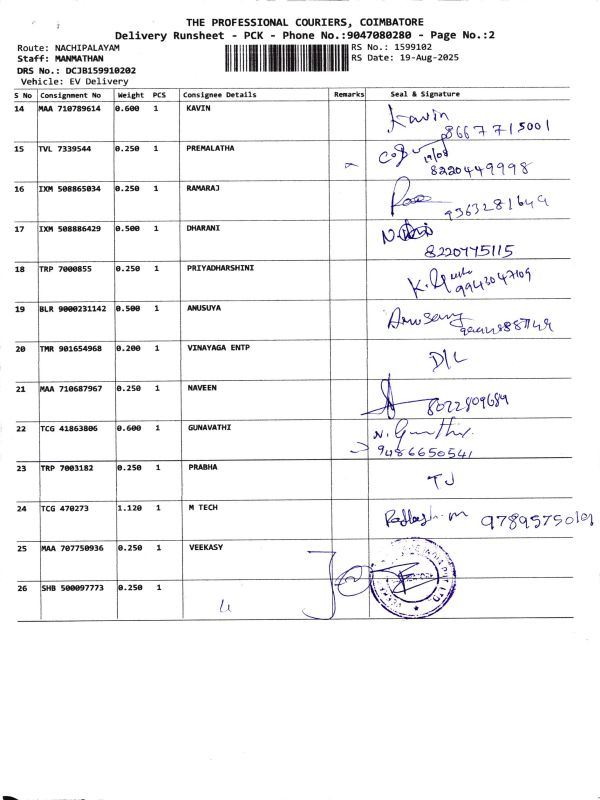 THE PROFESSIONAL COURIERS, COIMBATORE
Delivery Runsheet - PCK - Phone No.:9047080280 - Page No.:2
Route: NACHIPALAYAM RS No.: 1599102
Staff: MANMATHAN RS Date: 19-Aug-2025
DRS No.: DCJB159910202
Vehicle: EV Delivery
S No Consignment No Weight PCS Consignee Details Remarks Seal & Signature
14 MAA 710789614 0.600 1 KAVIN Kavin
8667715001
15 TVL 7339544 0.250 1 PREMALATHA
8220449998
16 IXM 508865034 0.250 1 RAMARAJ
9363281649
17 IXM 508886429 0.500 1 DHARANI
8220775115
18 TRP 7000855 0.250 1 PRIYADHARSHINI
9943047109
19 BLR 9000231142 0.500 1 ANUSUYA
20 TMR 901654968 0.200 1 VINAYAGA ENTP D/L
21 MAA 710687967 0.250 1 NAVEEN
8072809689
22 TCG 41863806 0.600 1 GUNAVATHI
9486650541
23 TRP 7003182 0.250 1 PRABHA TJ
24 TCG 470273 1.120 1 M TECH 9789575010
25 MAA 707750936 0.250 1 VEEKASY
26 SHB 500097773 0.250 1